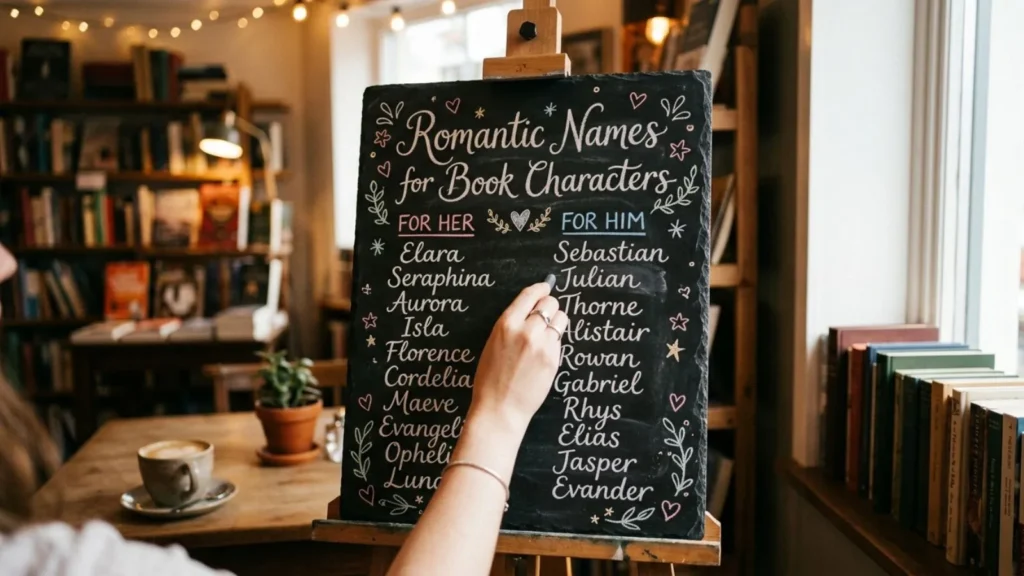 Romantic Names
for Book Characters
FOR HER
Elara
Seraphina
Aurora
Isla
Florence
Cordelia
Maeve
Evangeli
Opheli
Luna
FOR HIM
Sebastian
Julian
Thorne
Alistair
Rowan
Gabriel
Rhys
Elias
Jasper
Evander